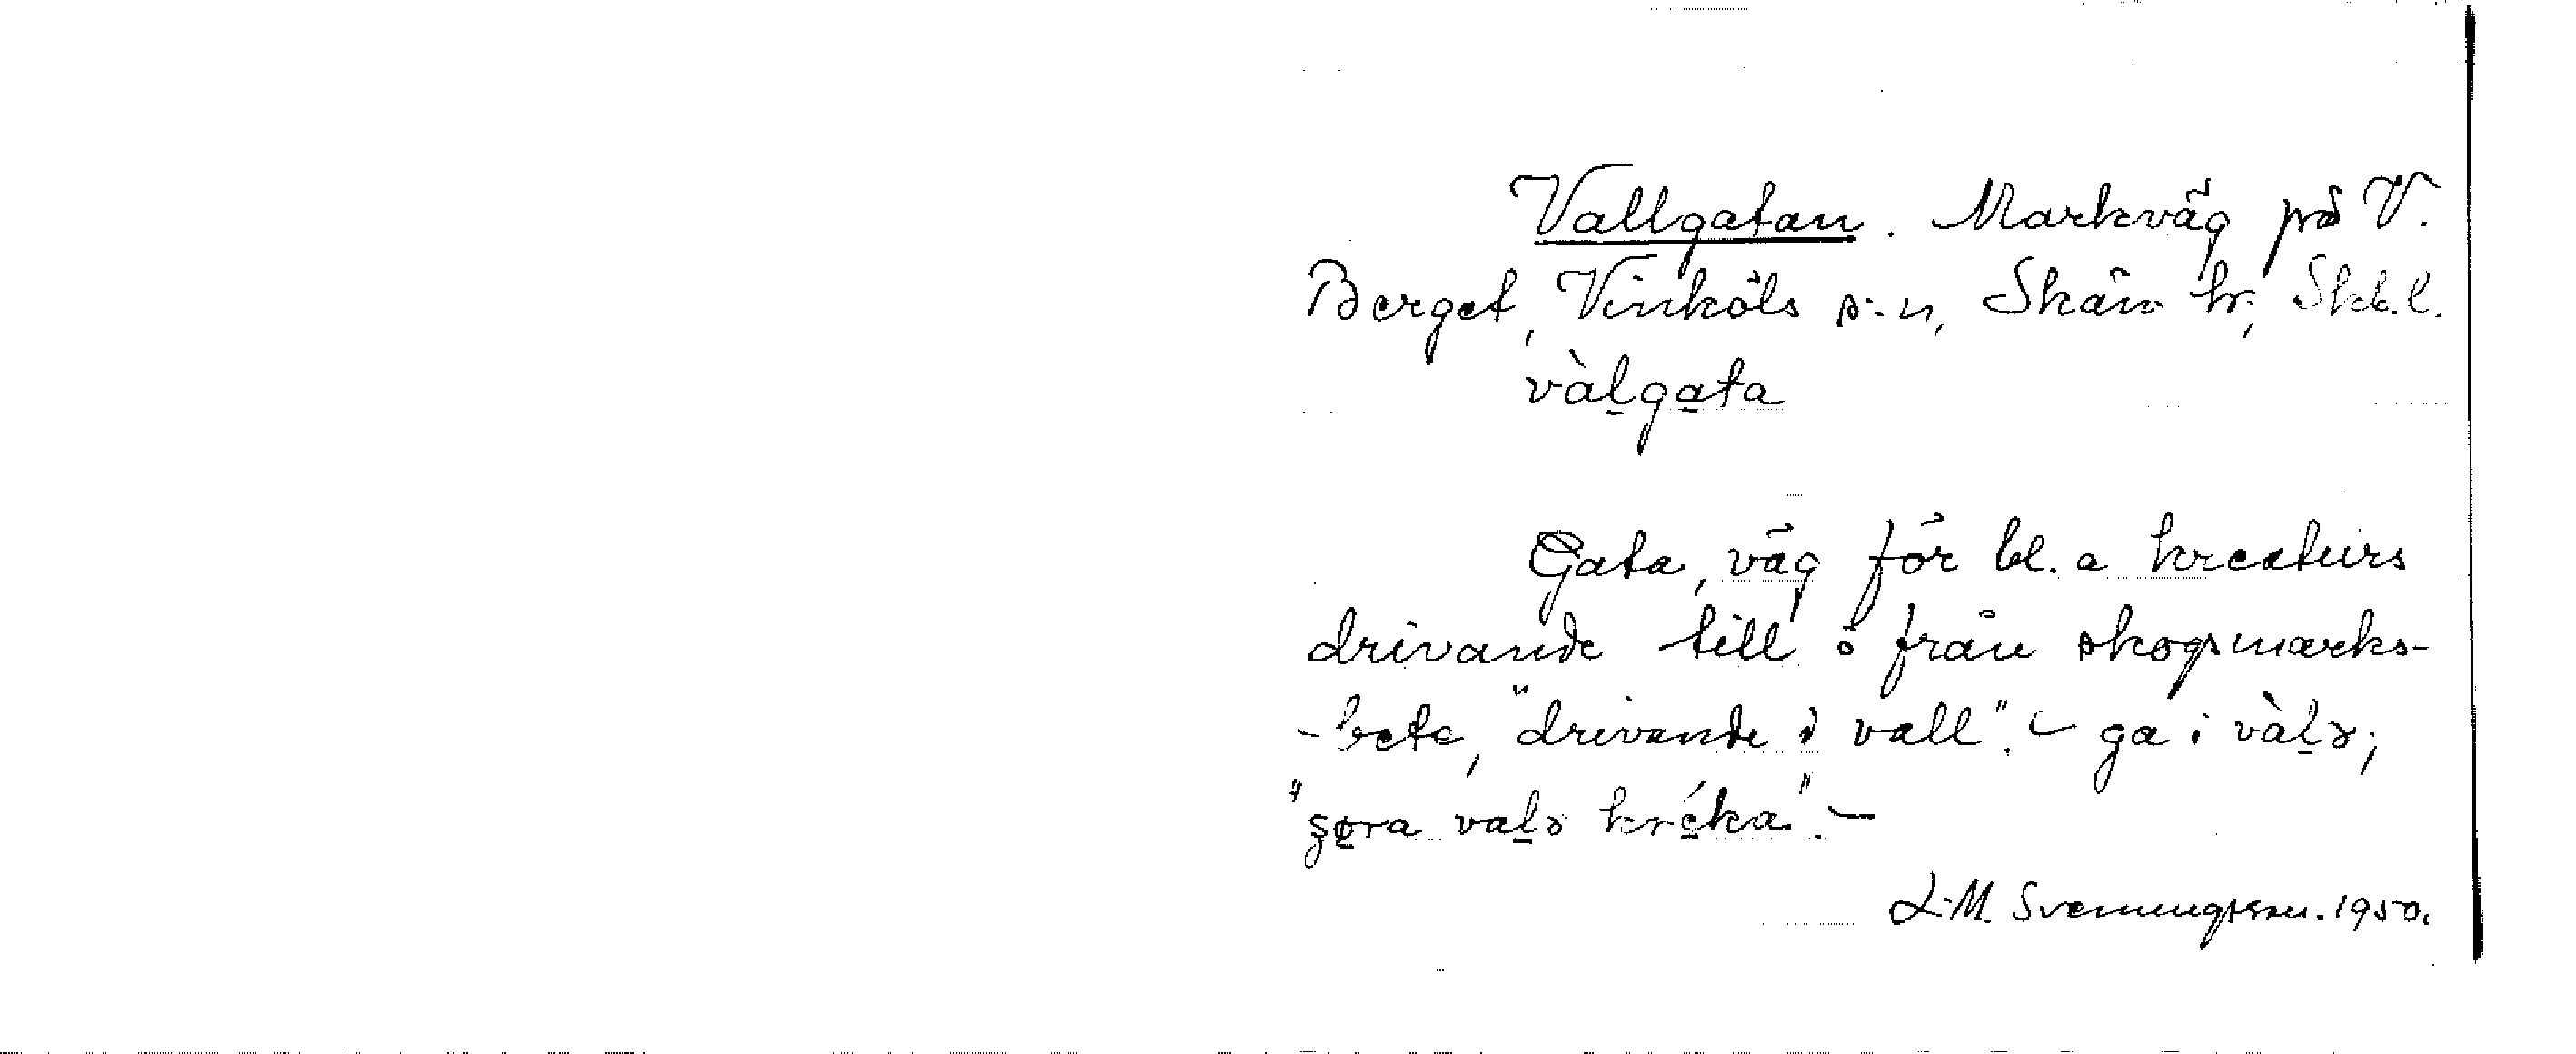 Vallgatan. Markväg på V.
Berget, Vinköls s:n, Skån hr, Skb.l.
vàl̠ga̠ta
Gata, väg för bl.a kreaturs
drivande till o från skogsmarks-
-bete, "drivande i vall". - ga i vàl̠ə;
"ʒø̠ra val̠ə kré̠ka". -
L.M. Svenungsson. 1950.